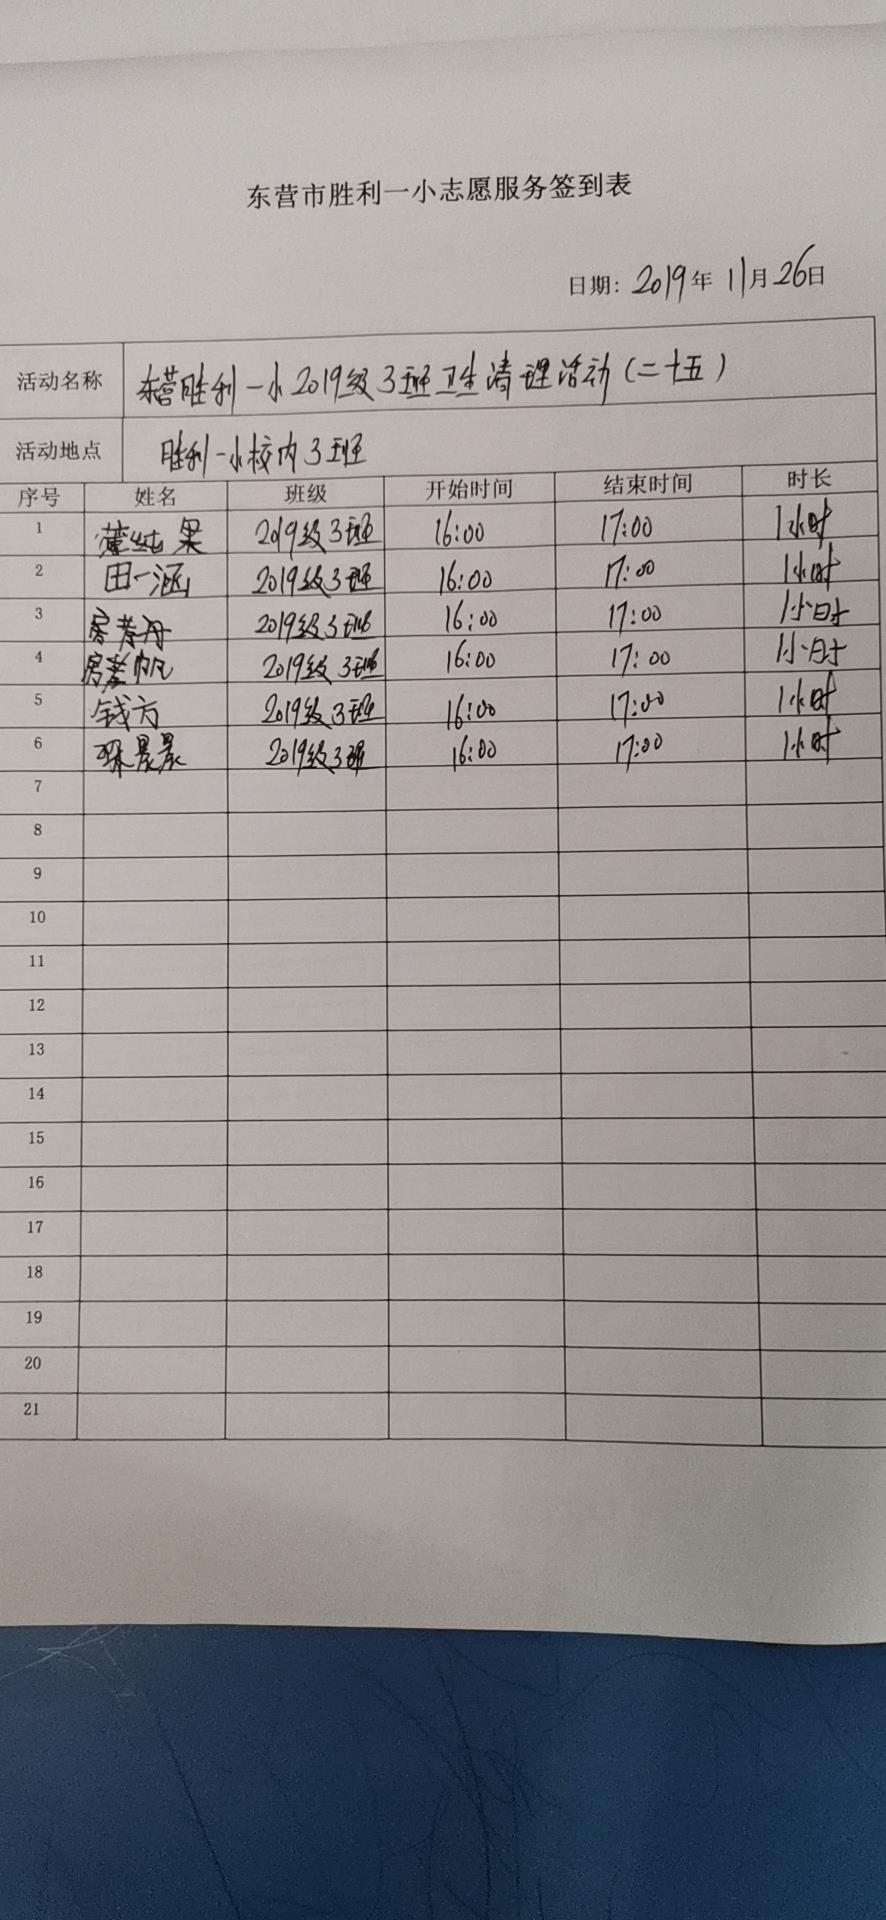 东营市胜利一小志愿服务签到表
日期: 2019年 11月26日
活动名称 东营胜利一小2019级3班卫生清理活动(二十五)
活动地点 胜利一小校内3班
序号 姓名 班级 开始时间 结束时间 时长
1 2019级3班 16:00 17:00 1小时
2 田一涵 2019级3班 16:00 17:00 1小时
3 2019级3班 16:00 17:00 1小时
4 2019级3班 16:00 17:00 1小时
5 钱方 2019级3班 16:00 17:00 1小时
6 2019级3班 16:00 17:00 1小时
7
8
9
10
11
12
13
14
15
16
17
18
19
20
21